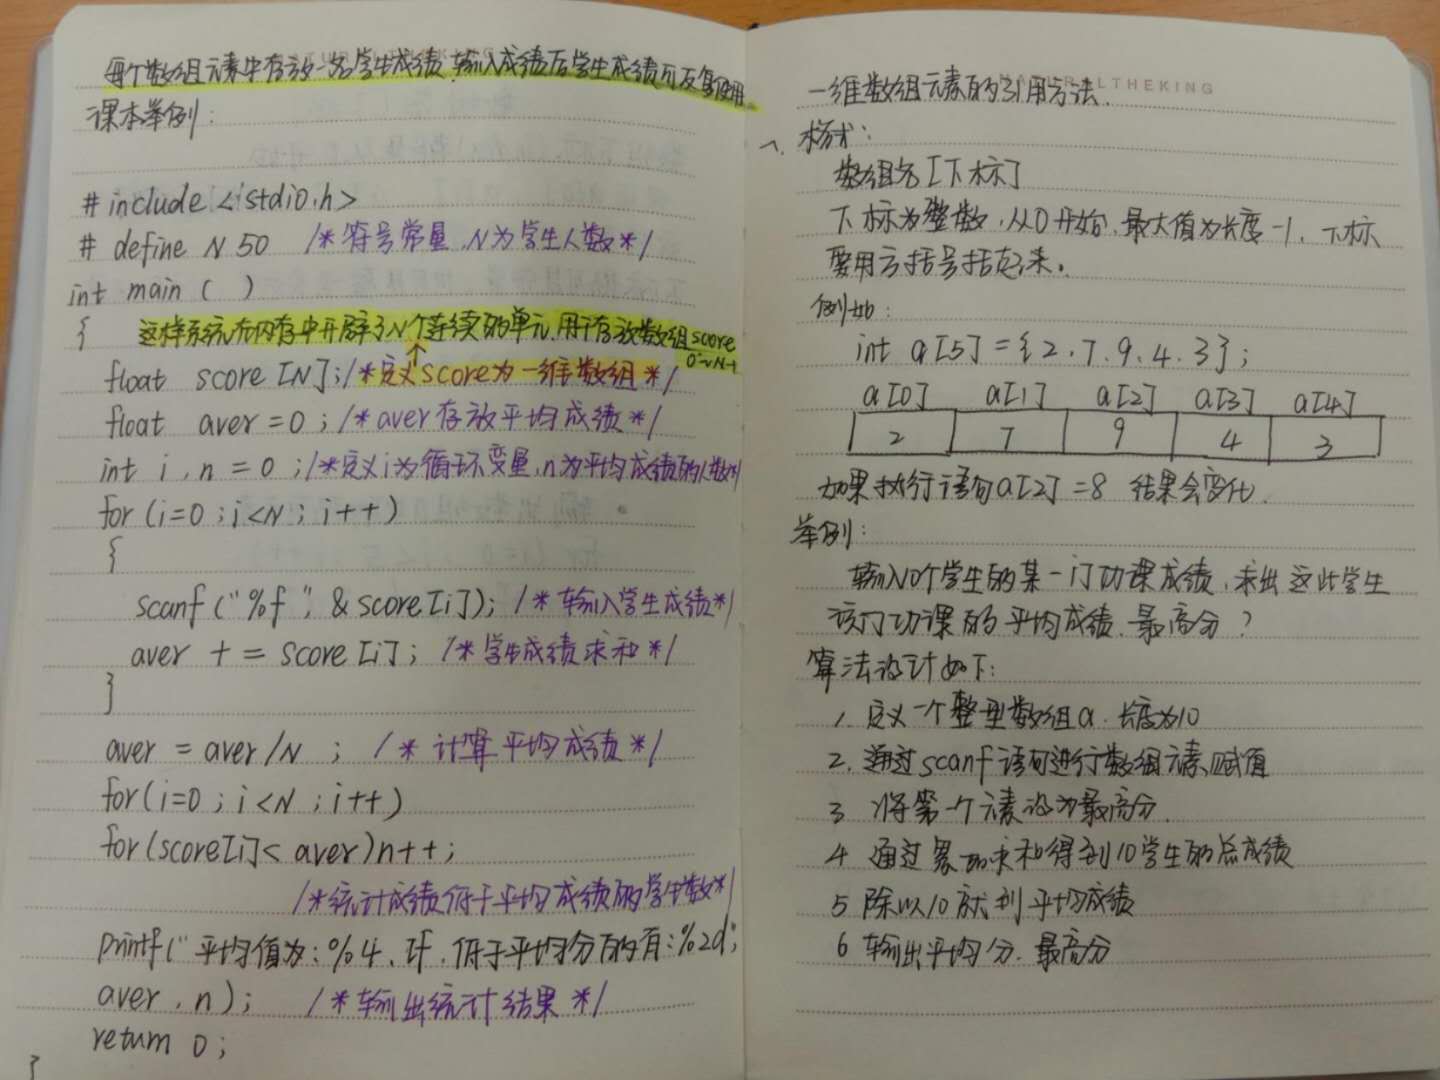 每个数组元素中存放一名学生成绩.输入成绩后学生成绩可反复使用
课本举例:
#include<stdio.h>
# define N 50 /*符号常量,N为学生人数*/
int main ( )
{ 这样系统在内存中开辟了N个连续的单元,用于存放数组score
0~N-1
float score [N];/*定义score为一维数组*/
float aver=0;/*aver存放平均成绩*/
int i,n=0;/*定义i为循环变量,n为平均成绩的人数*/
for (i=0;i<N;i++)
{
scanf("%f",&score[i]); /*输入学生成绩*/
aver += score[i]; /*学生成绩求和*/
}
aver = aver/N ; /* 计算平均成绩*/
for(i=0;i<N;i++)
for(score[i]< aver)n++;
/*统计成绩低于平均成绩的学生数*/
printf("平均值为:%4.1f,低于平均分的有:%2d;
aver,n); /*输出统计结果*/
return 0;
}
NATURALTHEKING
一维数组元素的引用方法.
一. 格式:
数组名[下标]
下标为整数,从0开始,最大值为长度-1,下标
要用方括号括起来.
例如:
int a[5]={2,7,9,4,3};
a[0] a[1] a[2] a[3] a[4]
2 7 9 4 3
如果执行语句a[2]=8 结果会变化.
举例:
输入10个学生的某一门功课成绩,求出这些学生
该门功课的平均成绩.最高分?
算法设计如下:
1. 定义一个整型数组a.长度为10
2. 通过scanf语句进行数组元素赋值
3 将第一个元素设为最高分.
4 通过累加求和得到10学生的总成绩
5 除以10就到平均成绩
6 输出平均分.最高分